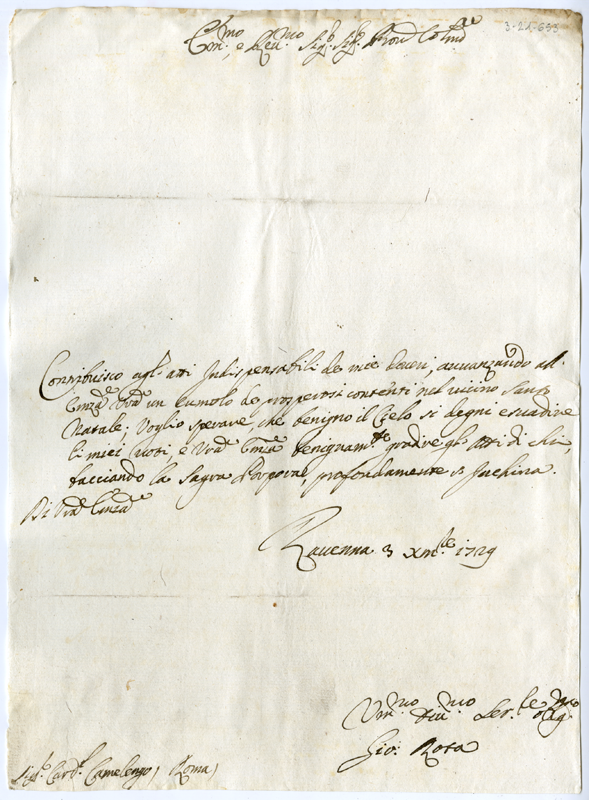 3-21-653
Em.mo e Reu.mo Sig.r Sig.r Pron Colmo
Contribuisco agl'atti Indispensabili de miei doueri, auuanzando all'
Emza Vra un cumolo de prosperosi contenti nel vicino Santo
Natale; Voglio sperare, che benigno il Cielo si degni esaudire
li miei voti, e Vra Emza benignam.te gradire gl'atti di chi,
facciando la Sagra Porpora, profondamente s'Inchina.
Di Vra Emza
Rauenna 3 Xm.bre 1729
Vm.mo Diu.mo Ser.re Oblig.mo
Gio: Rota
Sig.r Card.l Camelengo, Roma